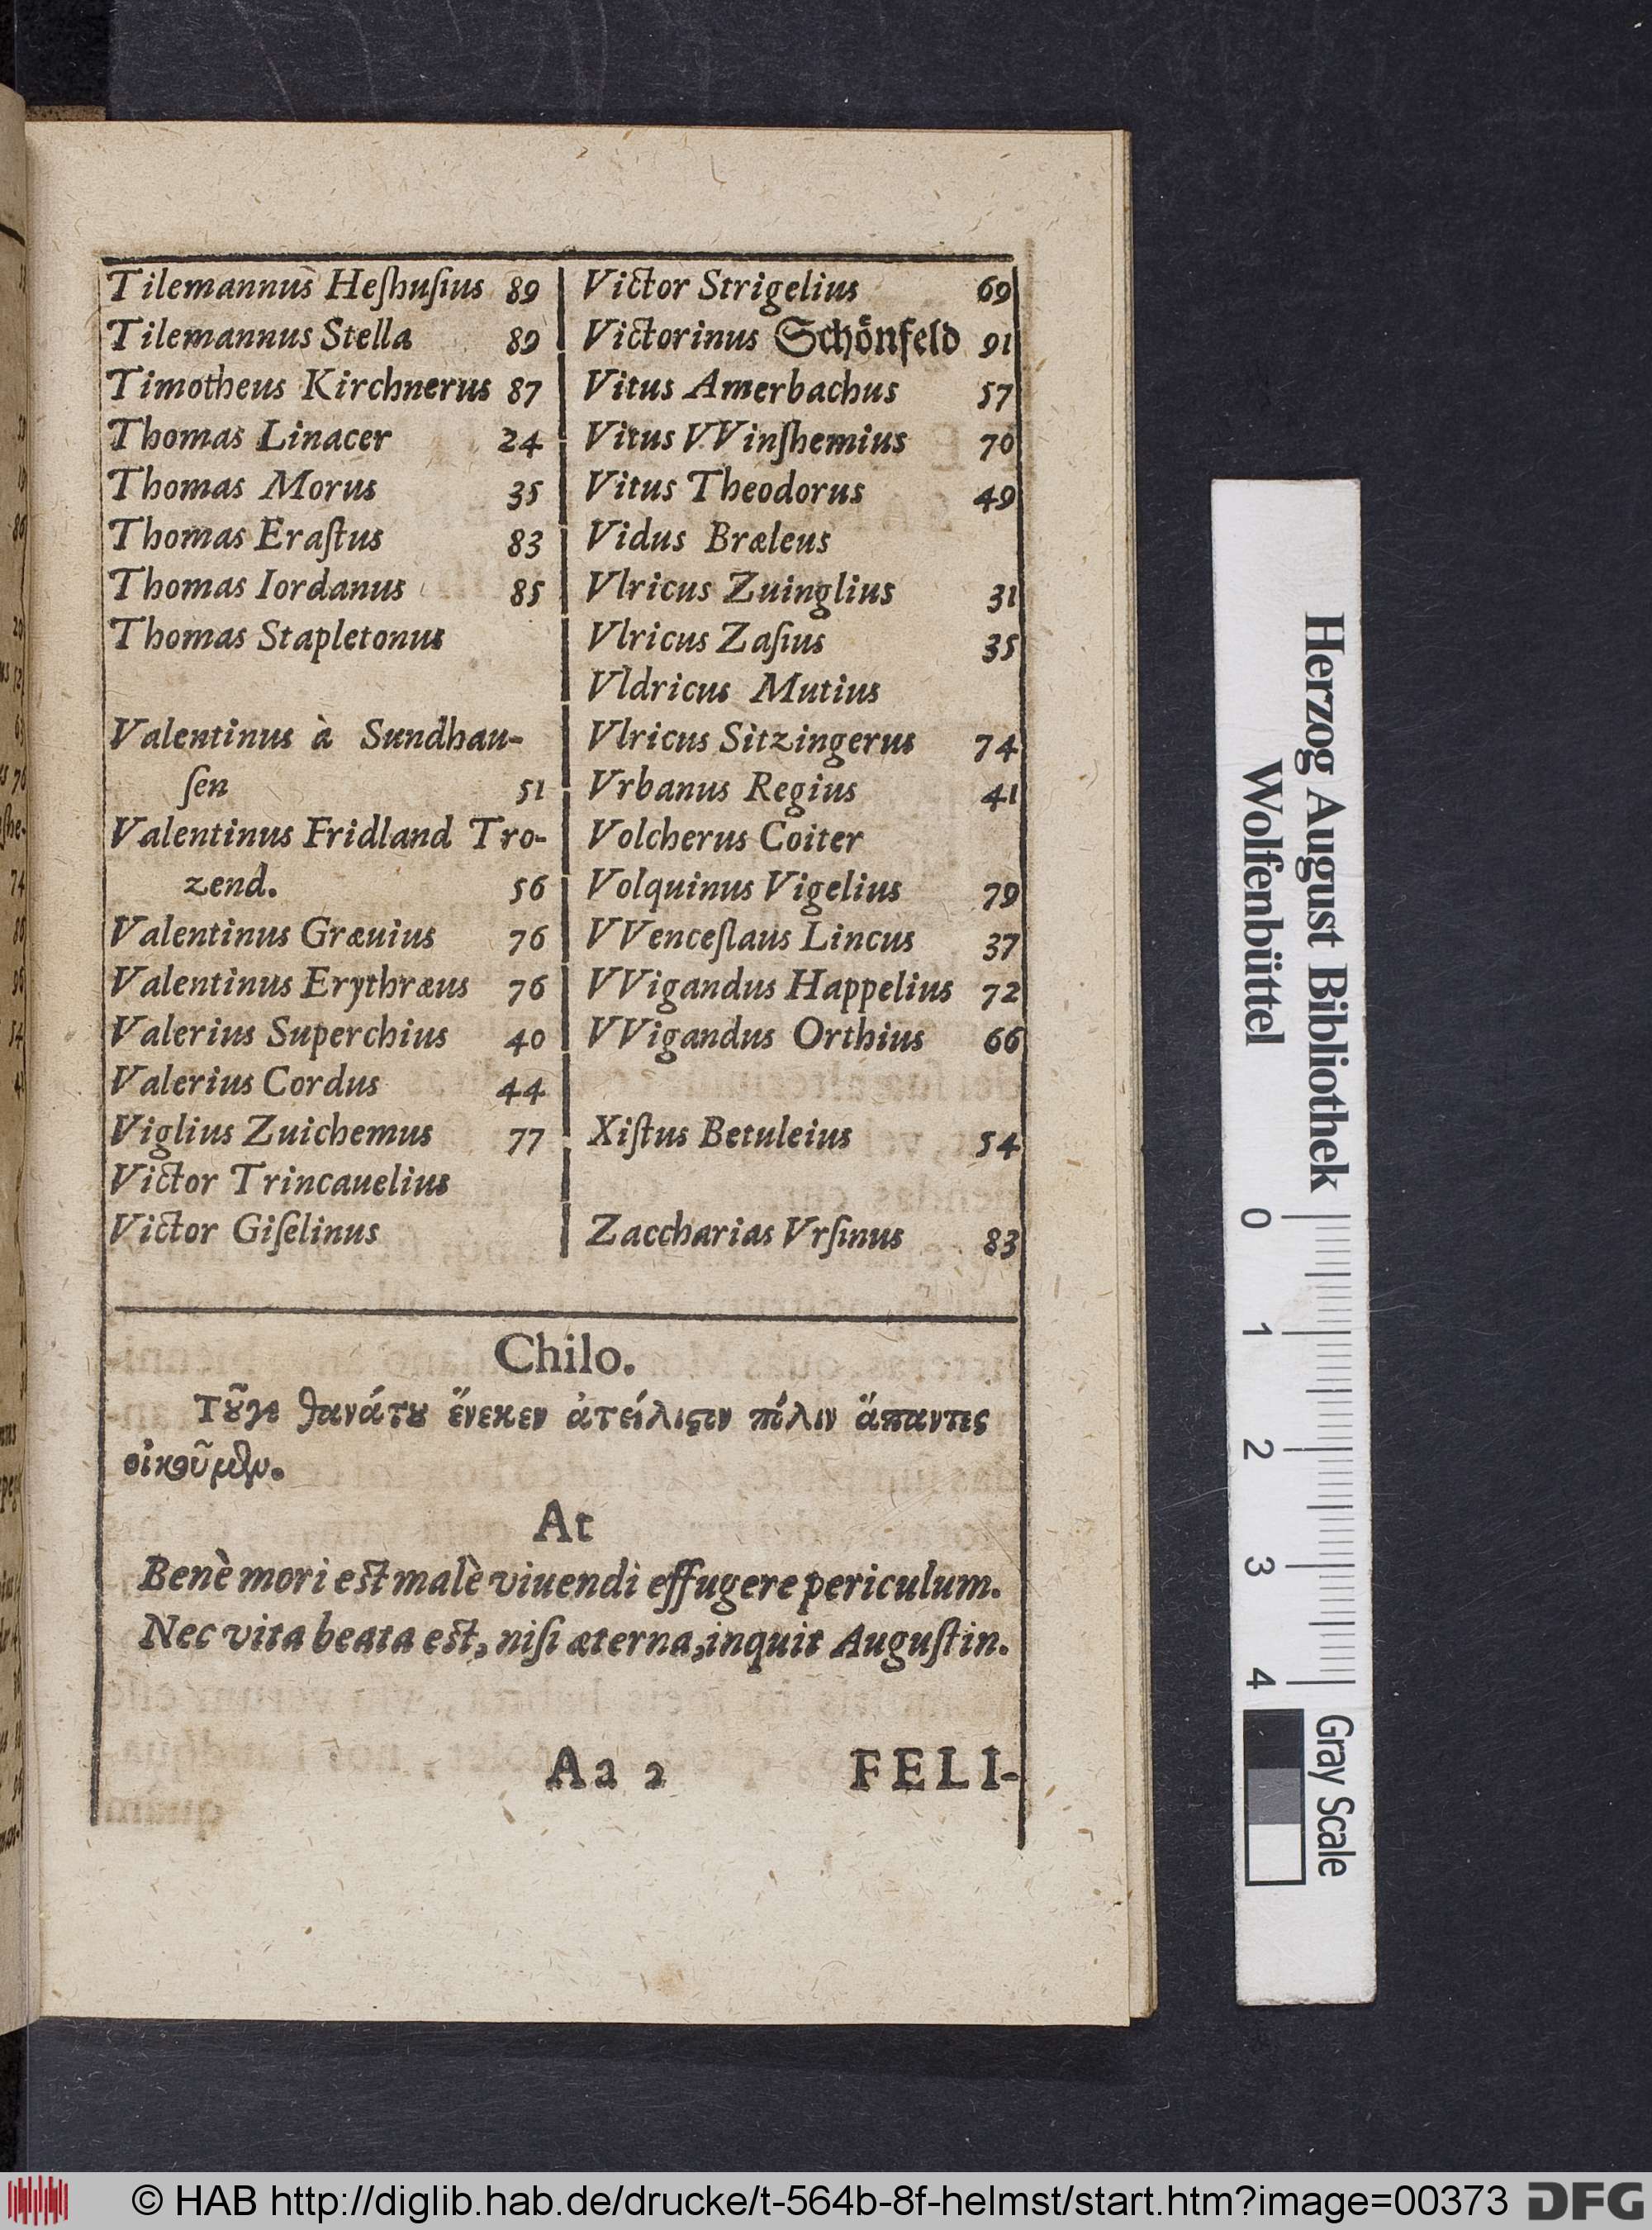 Tilemannus Heſhuſius 89
Tilemannus Stella 89
Timotheus Kirchnerus 87
Thomas Linacer 24
Thomas Morus 35
Thomas Eraſtus 83
Thomas Iordanus 85
Thomas Stapletonus
Valentinus à Sundhau-
ſen 51
Valentinus Fridland Tro-
zend. 56
Valentinus Græuius 76
Valentinus Erythræus 76
Valerius Superchius 40
Valerius Cordus 44
Viglius Zuichemus 77
Victor Trincauelius
Victor Giſelinus
Victor Strigelius 69
Victorinus Schönfeld 91
Vitus Amerbachus 57
Vitus VVinſhemius 70
Vitus Theodorus 49
Vidus Bræleus
Vlricus Zuinglius 31
Vlricus Zaſius 35
Vldricus Mutius
Vlricus Sitzingerus 74
Vrbanus Regius 41
Volcherus Coiter
Volquinus Vigelius 79
VVenceſlaus Lincus 37
VVigandus Happelius 72
VVigandus Orthius 66
Xiſtus Betuleius 54
Zaccharias Vrſinus 83
Chilo.
Τȣ͂γε θανάτȣ ἕνεκεν ἀτείχιϛον πόλιν ἅπαντες
οἰκοῦμεν.
At
Benè mori eſt malè viuendi effugere periculum.
Nec vita beata eſt, niſi æterna, inquit Auguſtin.
Aa 2 FELI-
Herzog August Bibliothek
Wolfenbüttel
0 1 2 3 4
Gray Scale
© HAB http://diglib.hab.de/drucke/t-564b-8f-helmst/start.htm?image=00373 DFG